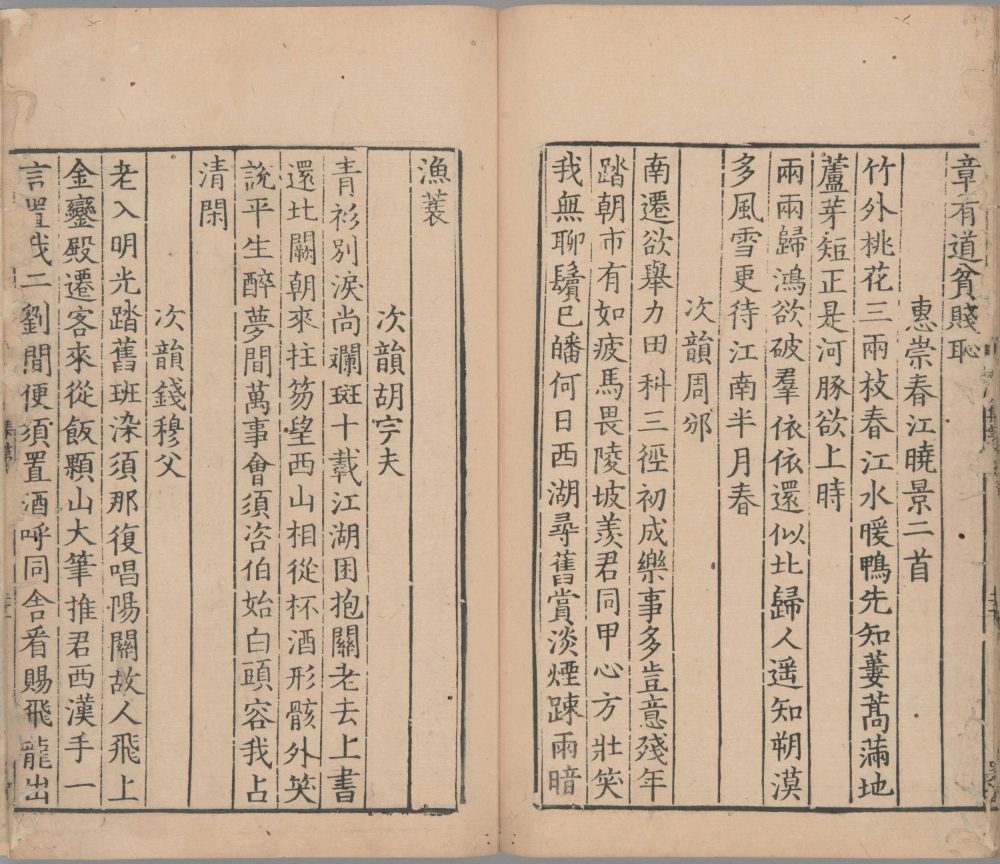 章有道貧賤恥
惠崇春江曉景二首
竹外桃花三兩枝春江水暖鴨先知蔞蒿滿地
蘆芽短正是河豚欲上時
兩兩歸鴻欲破羣依依還似北歸人遥知朔漠
多風雪更待江南半月春
次韻周邠
南遷欲舉力田科三徑初成樂事多豈意殘年
踏朝市有如疲馬畏陵坡羨君同甲心方壯笑
我無聊鬢已皤何日西湖尋舊賞淡煙踈雨暗
漁蓑
次韻胡完夫
青衫别淚尚斕斑十載江湖困抱關老去上書
還北闕朝來拄笏望西山相從杯酒形骸外笑
說平生醉夢間萬事會須咨伯始白頭容我占
清閑
次韻錢穆父
老入明光踏舊班染須那復唱陽關故人飛上
金鑾殿遷客來從飯顆山大筆推君西漢手一
言置我二劉間便須置酒呼同舍看賜飛龍出